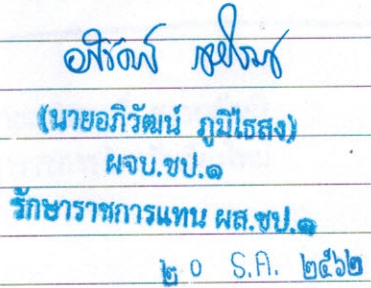 (นายอภิวัฒน์ ภูมิไธสง)
ผจบ.ชป.๑
รักษาราชการแทน ผส.ชป.๑
๒๐ ธ.ค. ๒๕๖๒